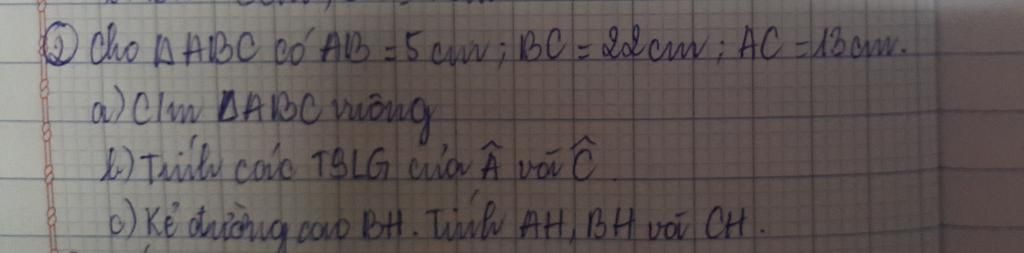 ② Cho ΔABC có AB = 5cm; BC = 22cm; AC = 13cm.
a) C/m ΔABC vuông
b) Tính các TSLG của Â và Ĉ.
c) Kẻ đường cao BH. Tính AH, BH và CH.